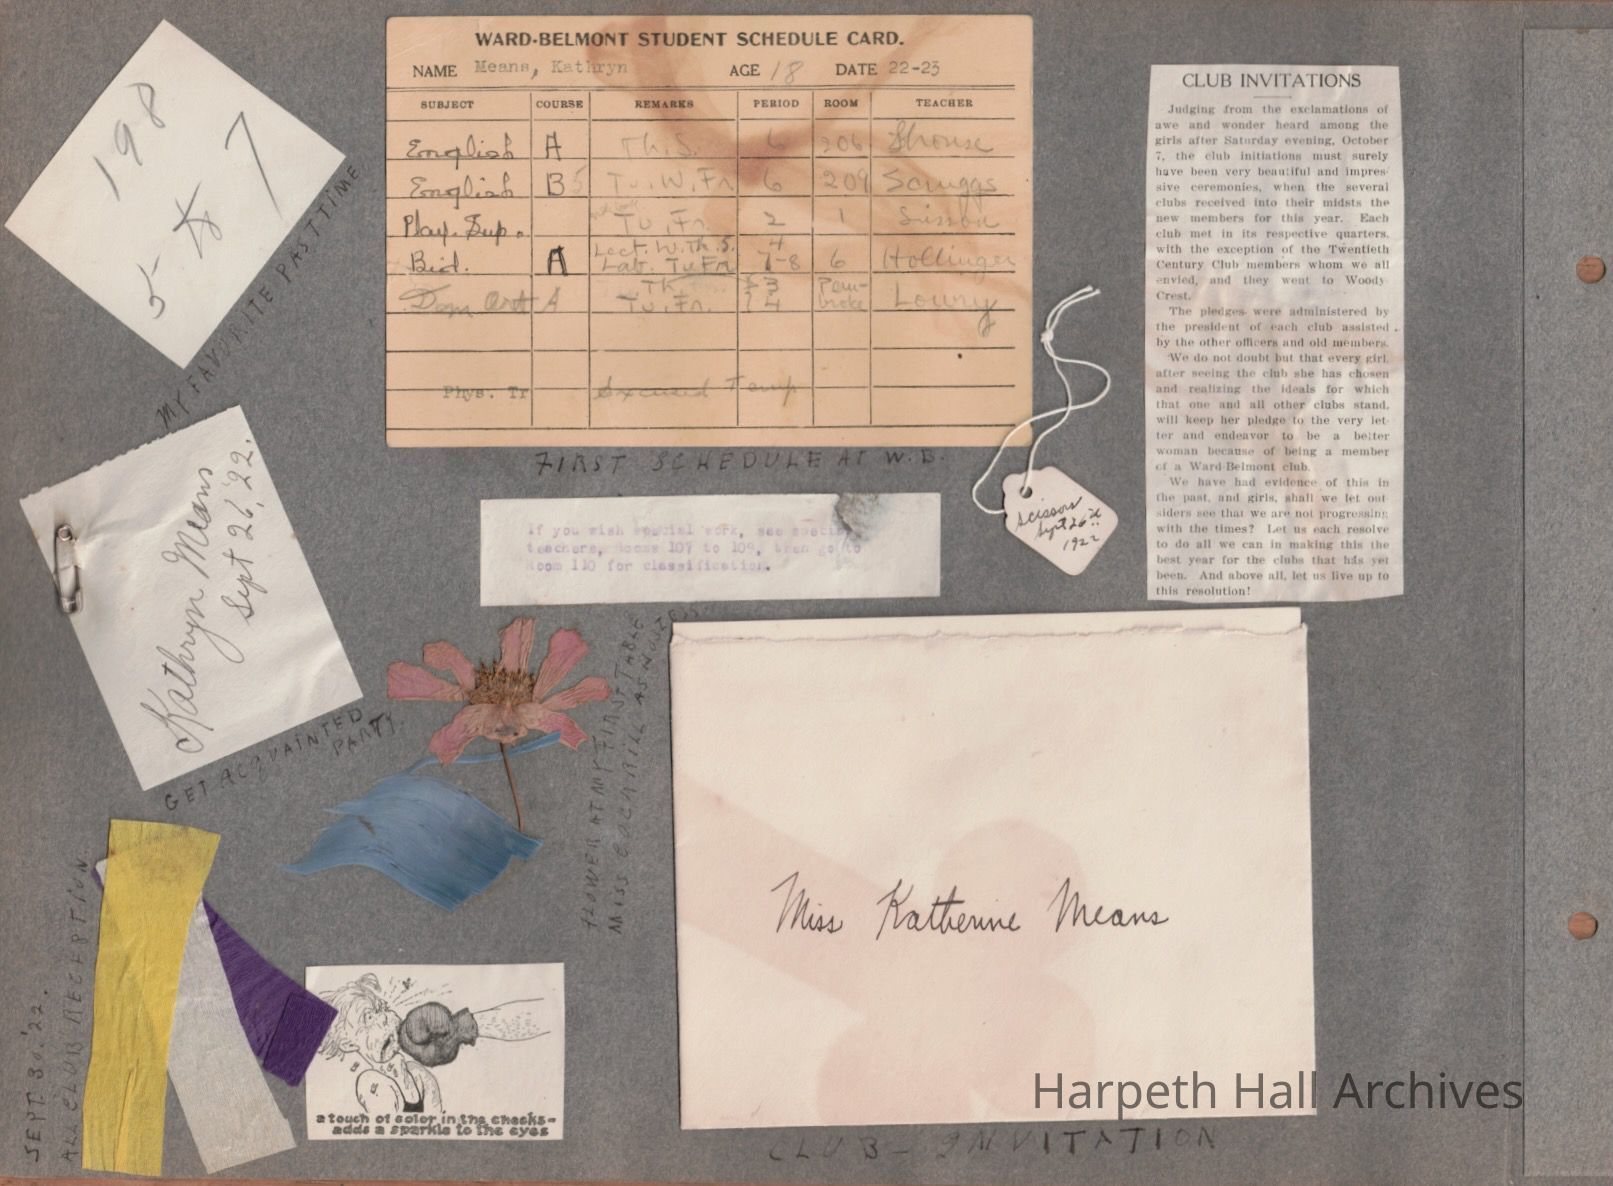 198
5 7
MY FAVORITE PASTTIME
WARD-BELMONT STUDENT SCHEDULE CARD.
NAME Means, Kathryn AGE 18 DATE 22-23
SUBJECT COURSE REMARKS PERIOD ROOM TEACHER
English A Th.S. 6 206 Shouse
English B Tu.W.Fr. 6 209 Scruggs
Play. Sup. Tu.,Fr. 2 1 Sisson
Biol. A Lect. W.Th.S. 4
Lab. Tu.Fr. 7-8 6 Hollinger
Dom Art A Th 3 Pem-
Tu.,Fr. 4 broke Lowry
Phys. Tr Excused Temp
FIRST SCHEDULE AT W.B.
CLUB INVITATIONS
Judging from the exclamations of
awe and wonder heard among the
girls after Saturday evening, October
7, the club initiations must surely
have been very beautiful and impres-
sive ceremonies, when the several
clubs received into their midsts the
new members for this year. Each
club met in its respective quarters,
with the exception of the Twentieth
Century Club members whom we all
envied, and they went to Woody
Crest.
The pledges were administered by
the president of each club assisted
by the other officers and old members.
We do not doubt but that every girl,
after seeing the club she has chosen
and realizing the ideals for which
that one and all other clubs stand,
will keep her pledge to the very let-
ter and endeavor to be a better
woman because of being a member
of a Ward-Belmont club.
We have had evidence of this in
the past, and girls, shall we let out-
siders see that we are not progressing
with the times? Let us each resolve
to do all we can in making this the
best year for the clubs that has yet
been. And above all, let us live up to
this resolution!
scissors
Sept 26
1922
If you wish special work, see special
teachers, Rooms 107 to 109, then go to
Room 110 for classification.
Kathryn Means
Sept 26, '22.
GET ACQUAINTED
PARTY.
FLOWER AT MY FIRST TABLE
MISS AS HOSTESS
SEPT 30. '22.
ALL CLUB RECEPTION
a touch of color in the cheeks-
adds a sparkle to the eyes
Miss Katherine Means
CLUB - INVITATION
Harpeth Hall Archives